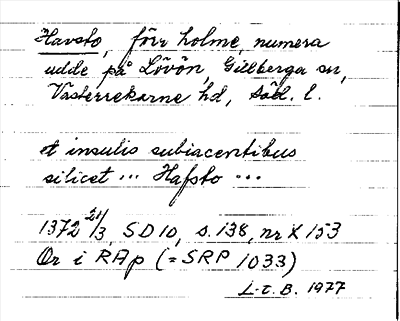 Havsto, förr holme, numera
udde på Lövön, Gillberga sn,
Västerrekarne hd, Södl. l.
et insulis subiacentibus
silicet ... Hafsto ...
1372 21/3, SD 10, s. 138, nr X 153
Or i RAp (= SRP 1033)
L-t. B. 1977